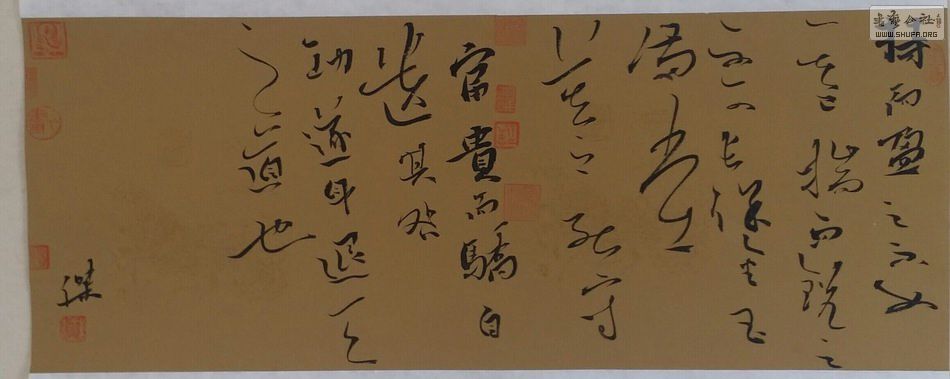 持而盈之不如
其已揣而銳之
不可長保金玉
滿堂
莫之能守
富貴而驕自
遺其咎
功遂身退天
之道也
书法公社
WWW.SHUFA.ORG